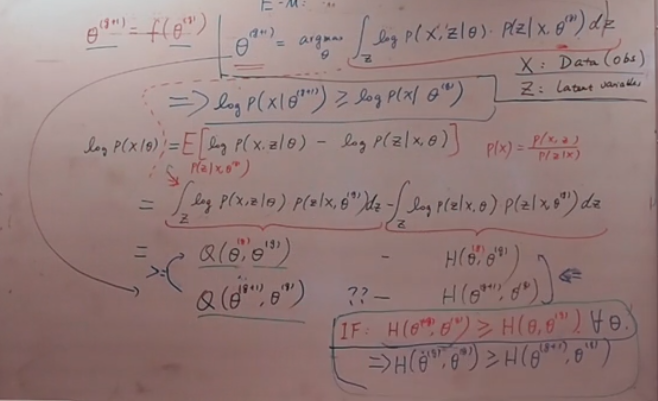 E-M:
θ^(g+1) = f(θ^(g))
θ^(g+1) = argmax_θ ∫_Z log P(X,Z|θ) · P(Z|X,θ^(g)) dz
X: Data (obs)
Z: Latent variables
=> log P(X|θ^(g+1)) ≥ log P(X|θ^(g))
log P(X|θ) = E[log P(X,Z|θ) − log P(Z|X,θ)]
P(Z|X,θ^(g))
P(X) = P(X,Z)/P(Z|X)
= ∫_Z log P(X,Z|θ) P(Z|X,θ^(g)) dz − ∫_Z log P(Z|X,θ) P(Z|X,θ^(g)) dz
= Q(θ^(g), θ^(g)) − H(θ^(g), θ^(g))
>= Q(θ^(g+1), θ^(g)) ?? − H(θ^(g+1), θ^(g))
IF: H(θ^(g), θ^(g)) ≥ H(θ, θ^(g)) ∀ θ.
=> H(θ^(g), θ^(g)) ≥ H(θ^(g+1), θ^(g))